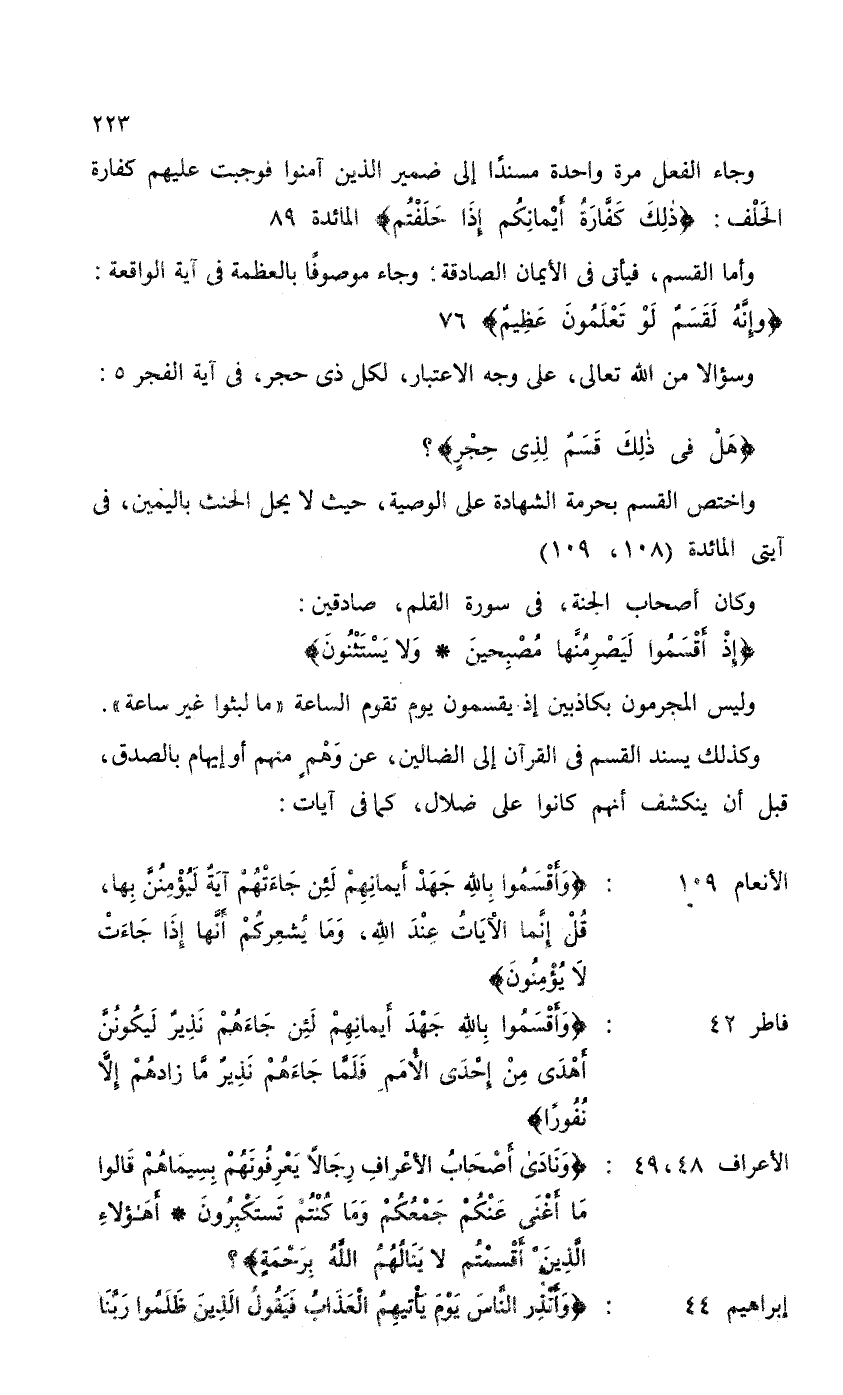 ٢٢٣
وجاء الفعل مرة واحدة مسندًا إلى ضمير الذين آمنوا فوجبت عليهم كفارة
الحَلْف : ﴿ذٰلِكَ كَفَّارَةُ أَيْمانِكُم إِذَا حَلَفْتُم﴾ المائدة ٨٩
وأما القسم، فيأتى فى الأيمان الصادقة؛ وجاء موصوفًا بالعظمة فى آية الواقعة :
﴿وإِنَّهُ لَقَسَمٌ لَوْ تَعْلَمُونَ عَظِيمٌ﴾ ٧٦
وسؤالا من الله تعالى، على وجه الاعتبار، لكل ذى حجر، فى آية الفجر ٥ :
﴿هَلْ فى ذٰلِكَ قَسَمٌ لِذِى حِجْرٍ﴾؟
واختص القسم بحرمة الشهادة على الوصية، حيث لا يحل الحنث باليمين، فى
آيتى المائدة (١٠٨، ١٠٩)
وكان أصحاب الجنة، فى سورة القلم، صادقين :
﴿إِذْ أَقْسَمُوا لَيَصْرِمُنَّها مُصْبِحينَ * وَلا يَسْتَثْنُونَ﴾
وليس المجرمون بكاذبين إذ يقسمون يوم تقوم الساعة «ما لبثوا غير ساعة».
وكذلك يسند القسم فى القرآن إلى الضالين، عن وَهْمٍ منهم أو إيهام بالصدق،
قبل أن ينكشف أنهم كانوا على ضلال، كما فى آيات :
الأنعام ١٠٩ : ﴿وَأَقْسَمُوا بِاللهِ جَهَدْ أَيمانِهِمْ لَئِن جَاءَتْهُمْ آيَةٌ لَيُؤْمِنُنَّ بِها،
قُلْ إِنَّما الْآيَاتُ عِنْدَ اللهِ، وَمَا يُشعِركُمْ أَنَّها إِذَا جَاءَتْ
لَا يُؤْمِنُونَ﴾
فاطر ٤٢ : ﴿وَأَقْسَمُوا بِاللهِ جَهْدَ أَيمانِهِمْ لَئِن جَاءَهُمْ نَذِيرٌ لَيكُونُنَّ
أَهْدَى مِنْ إِحْدَى الْأُمَمِ فَلَمَّا جَاءَهُمْ نَذِيرٌ مَّا زادهُمْ إِلَّا
نُفُورًا﴾
الأعراف ٤٨، ٤٩ : ﴿وَنَادَىٰ أَصْحَابُ الأعْرافِ رِجَالاً يَعْرِفُونَهُمْ بِسِيمَاهُمْ قَالوا
مَا أَغْنَى عَنْكُمْ جَمْعُكُمْ وَمَا كُنْتُمْ تَستَكْبِرُونَ * أَهَـؤلاءِ
الَّذِينَ أَقْسمْتُم لا يَنَالُهُمُ اللَّهُ بِرَحْمَةٍ﴾؟
إبراهيم ٤٤ : ﴿وَأَنْذِر النَّاسَ يَوْمَ يَأْتيهِمُ الْعَذَابُ فَيَقُولُ الَذِينَ ظَلَمُوا رَبَّنَا